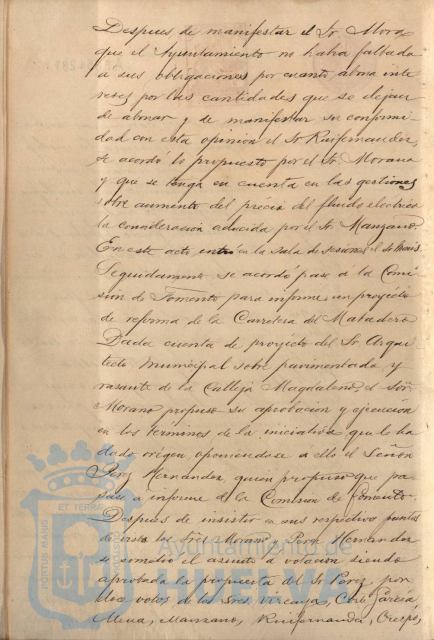 Despues de manifestar el Sr. Mora
que el Ayuntamiento no habia faltado
a sus obligaciones por cuanto abona inte
reses por las cantidades que se dejan
de abonar y de manifestar su conformi
dad con esta opinion el Sr. Ruifernandez,
se acordó lo propuesto por el Sr. Morano
y que se tenga en cuenta en las gestiones
sobre aumento del précio del fluido electrico
la consideración aducida por el Sr. Manzano.
En este acto entró en la Sala de sesiones el Sr.
Seguidamente se acordó pase a la Comi
sion de Fomento para informe, un proyecto
de reforma de la Carretera del Matadero
Dada cuenta de proyecto del Sr. Arqui
tecto Municipal sobre pavimentado y
rasante de la Calleja Magdalena, el Señor
Morano propuso su aprobacion y ejecución
en los terminos de la iniciativa que le ha
dado origen, oponiendose a ello el Señor
Perez Hernandez, quien propuso que pa
sase a informe de la Comision de Fomento.
Despues de insistir en sus respectivos puntos
de vista los Sres. Morano y Perez Hernandez
se sometió el asunto a votacion siendo
aprobada la propuesta del Sr. Perez por
los votos de los Sres. Vizcaya, García
Mena, Manzano, Ruifernandez, Crespo,
PORTUS MARIS ET TERRÆ CUSTODIA
Ayuntamiento de
HUELVA